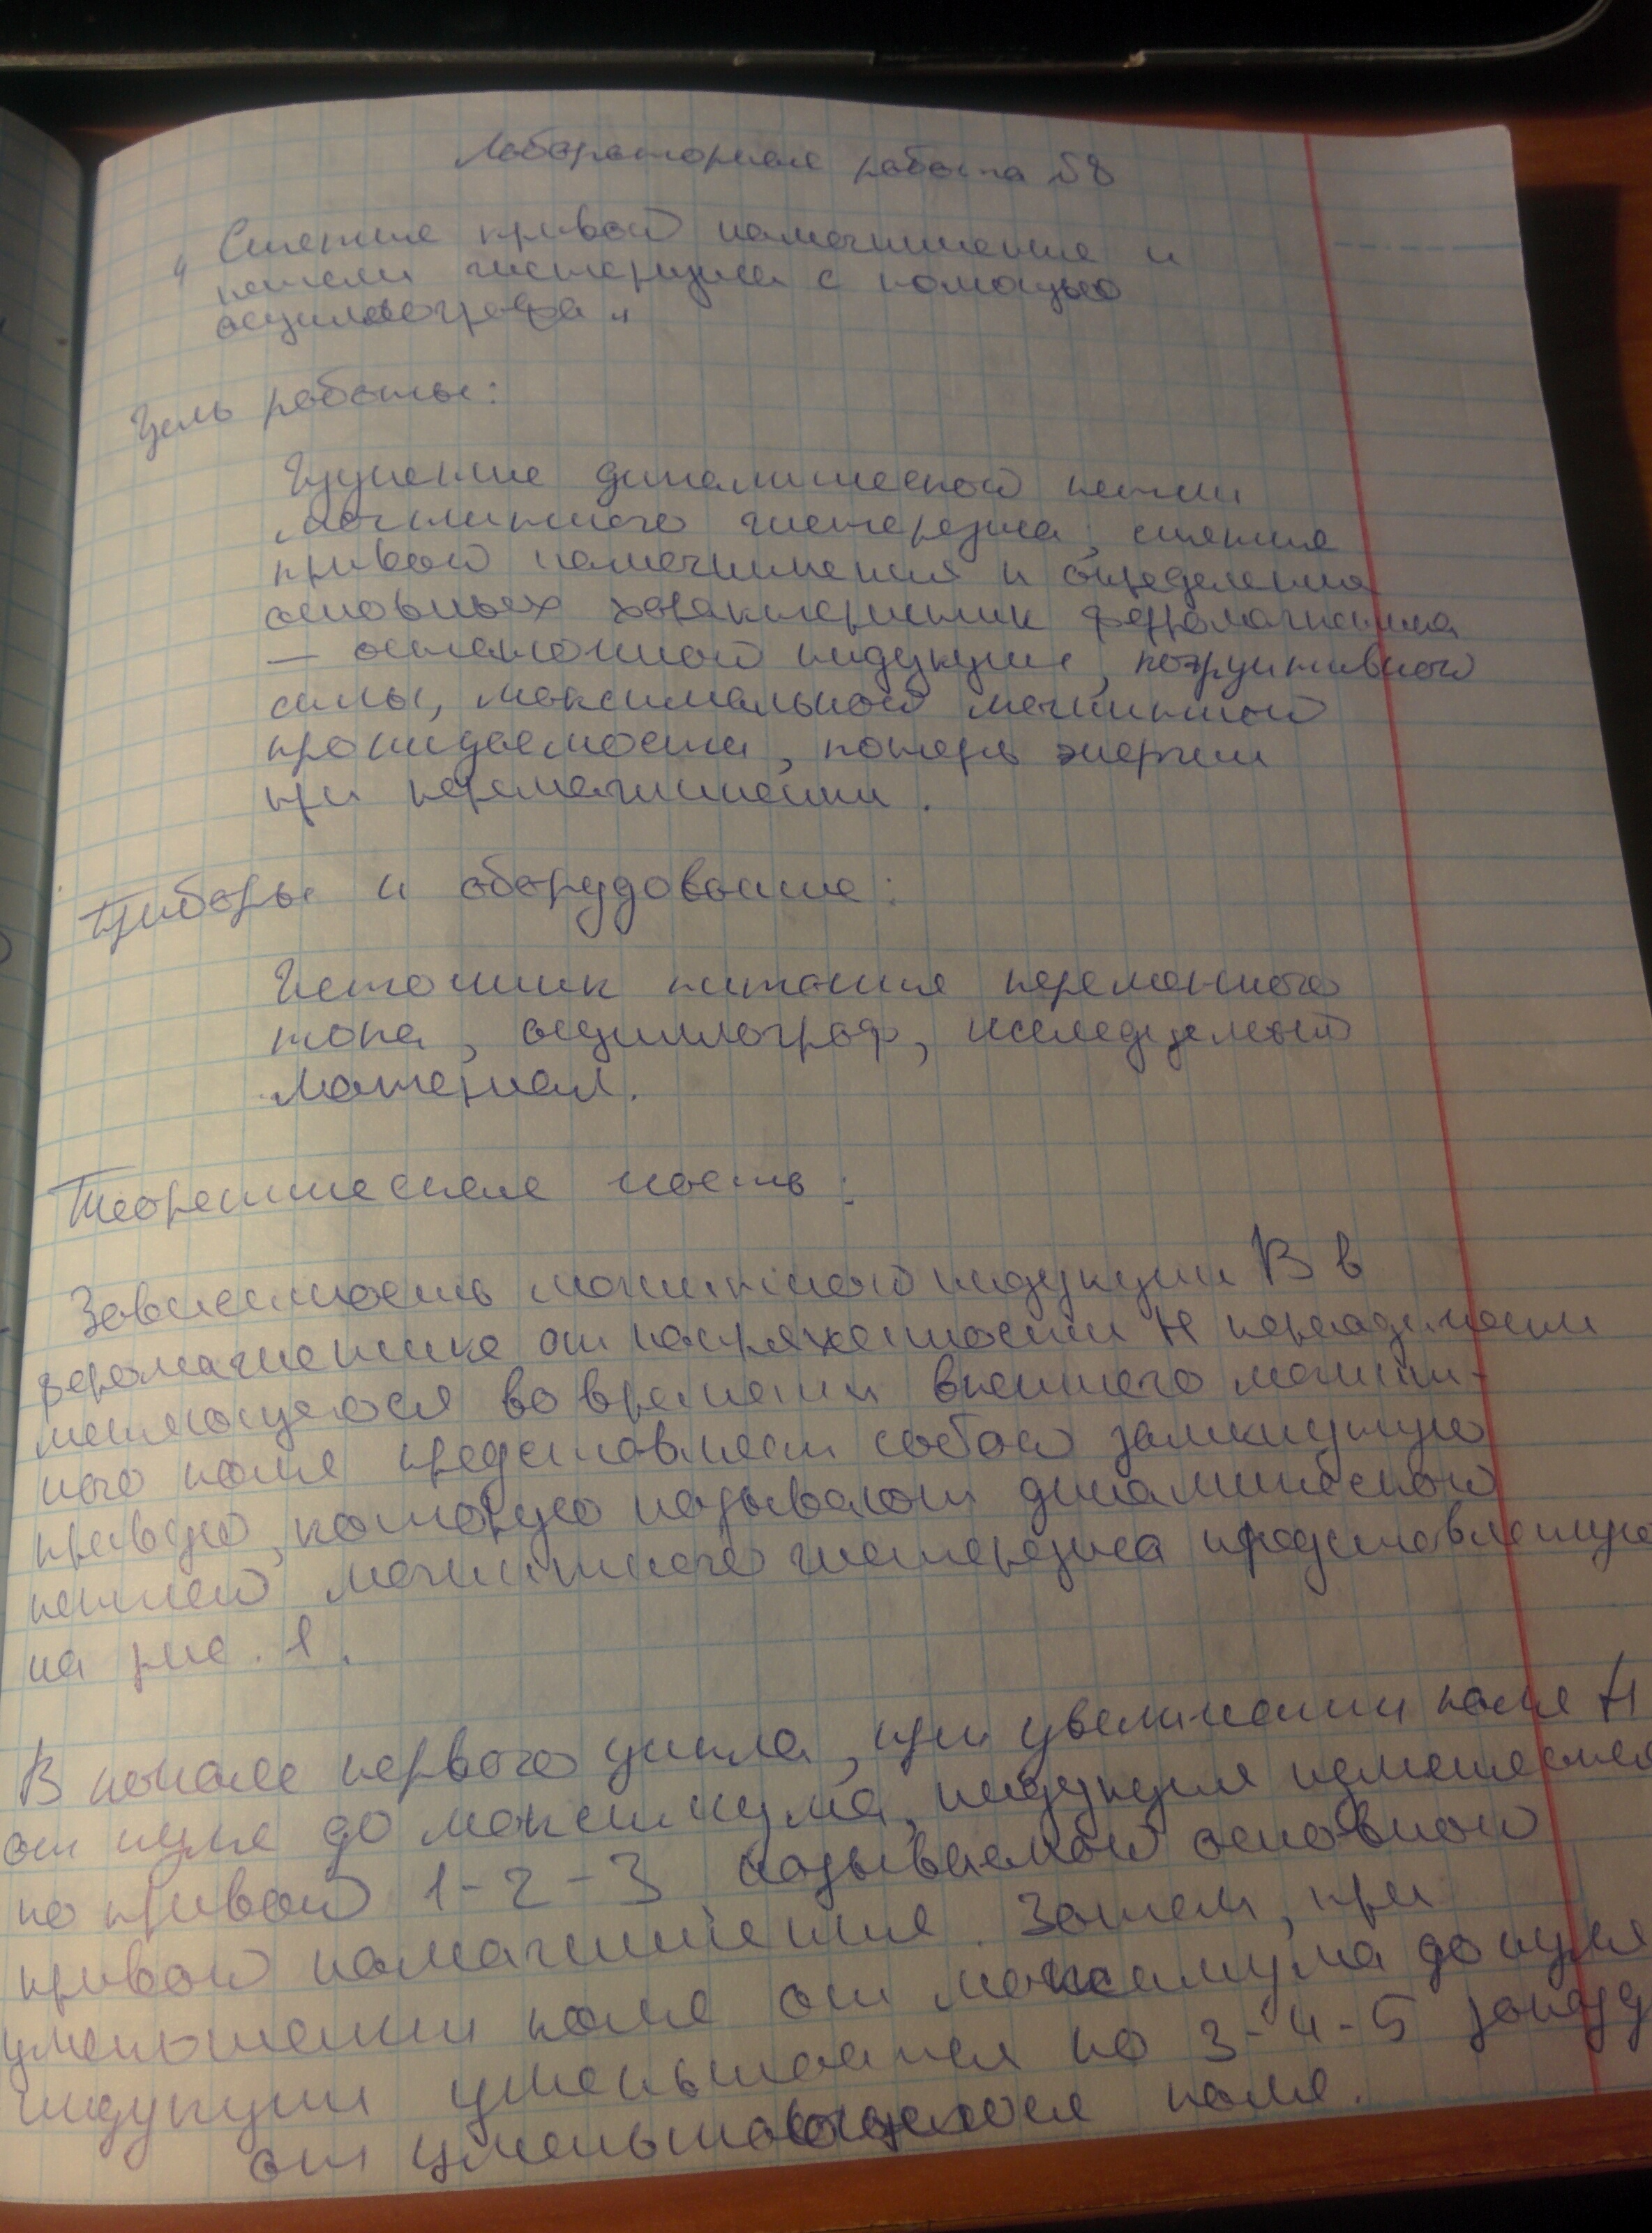 Лабораторная работа №8
"Снятие кривой намагничивания и
петли гистерезиса с помощью
осциллографа"
Цель работы:
Изучение динамической петли
магнитного гистерезиса, снятие
кривой намагничивания и определения
основных характеристик ферромагнетика
— остаточной индукции, коэрцитивной
силы, максимальной магнитной
проницаемости, потерь энергии
при перемагничивании.
Приборы и оборудование:
Источник питания переменного
тока, осциллограф, исследуемый
материал.
Теоретическая часть:
Зависимость магнитной индукции B в
ферромагнетике от напряженности H периодически
меняющегося во времени внешнего магнит-
ного поля представляет собой замкнутую
кривую, которую называют динамической
петлей магнитного гистерезиса представленную
на рис. 1.
В начале первого цикла, при увеличении поля H
от нуля до максимума, индукция изменяется
по кривой 1-2-3 называемой основной
кривой намагничивания. Затем, при
уменьшении поля от максимума до нуля
индукции уменьшается по 3-4-5
от уменьшающегося поля.